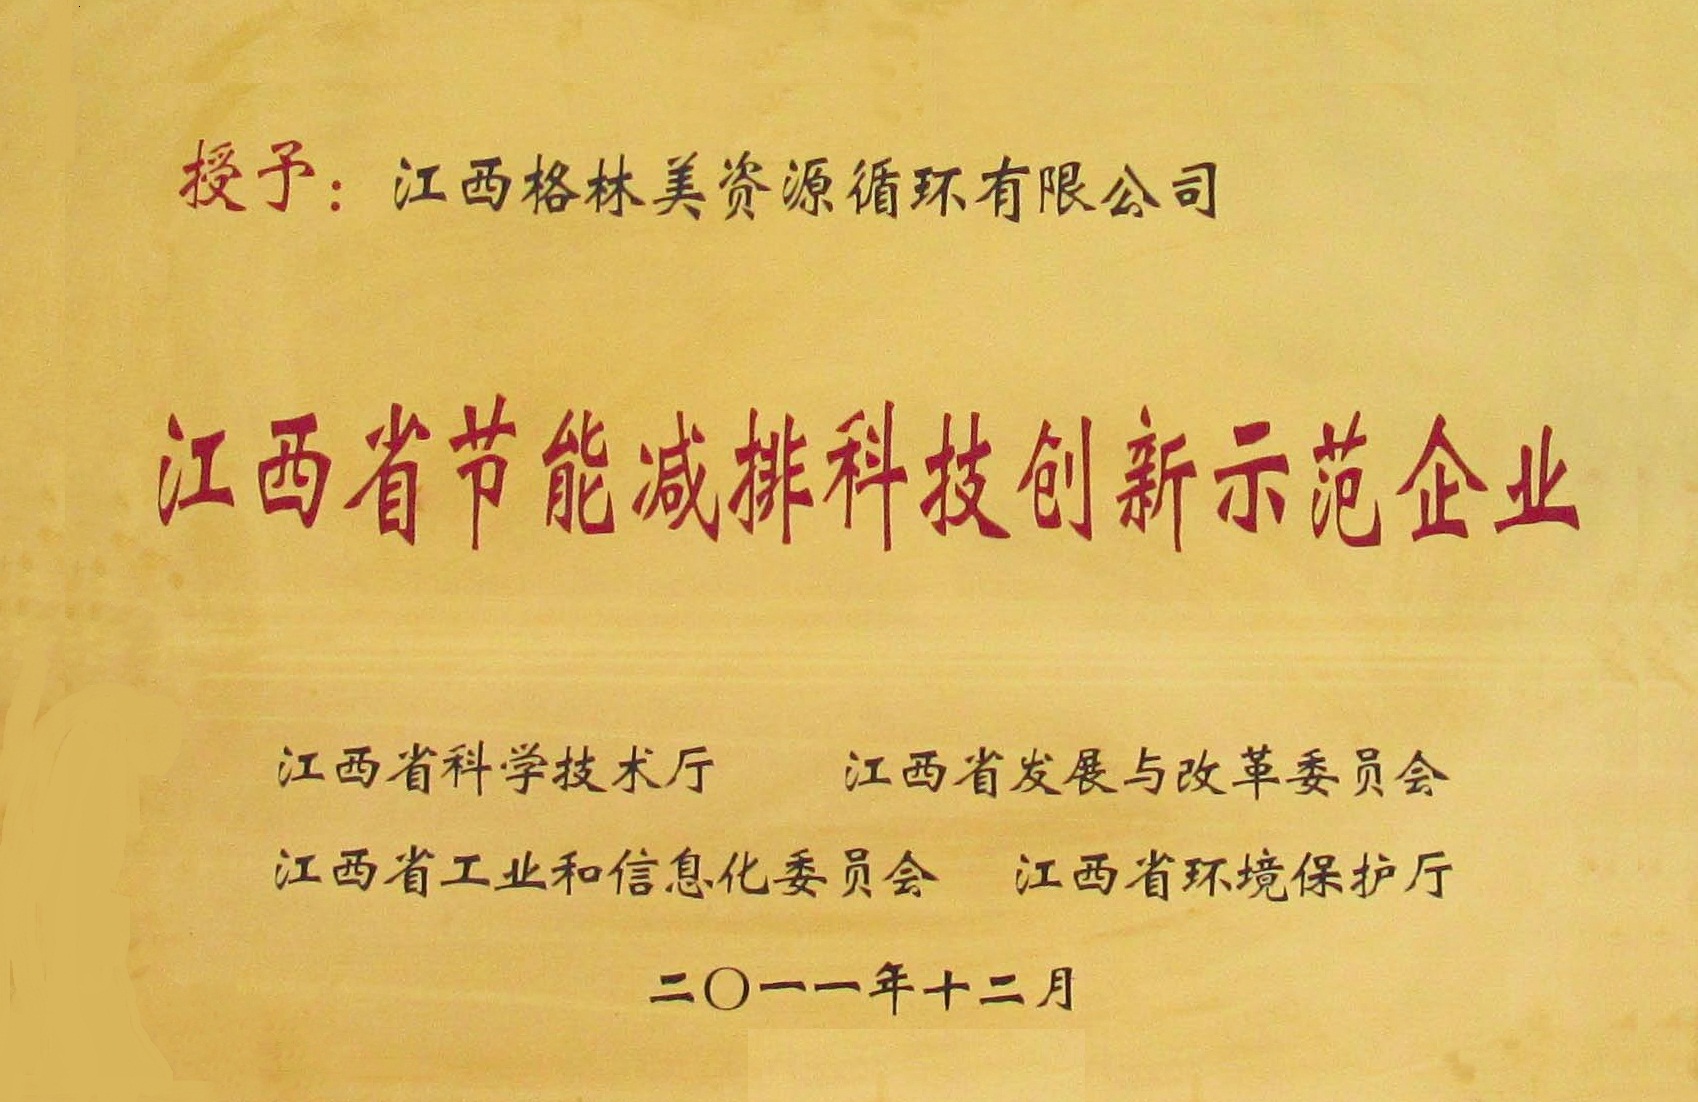 授予：江西格林美资源循环有限公司
江西省节能减排科技创新示范企业
江西省科学技术厅 江西省发展与改革委员会
江西省工业和信息化委员会 江西省环境保护厅
二〇一一年十二月